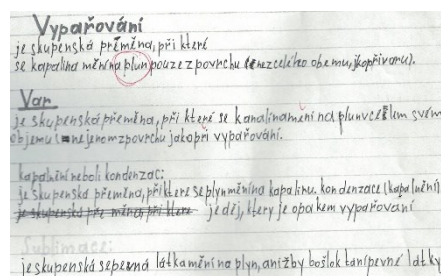 Vypařování
je skupenská přeměna, při které
se kapalina mění na plyn pouze z povrchu (ne z celého obemu, jko při varu).
Var
je skupenská přeměna, při které se kapalina mění na plyn v celém svém
objemu ne jenom z povrchu jako při vypařování.
kapalnění neboli kondenzac:
je skupenská přeměna, při které se plyn mění na kapalinu. kondenzace (kapalnění)
je skupenská přeměna, při které je děj, ktery je opakem vypařování
Sublimace:
je skupenská se pevná látka mění na plyn, aniž by došlo k tání pevné látky